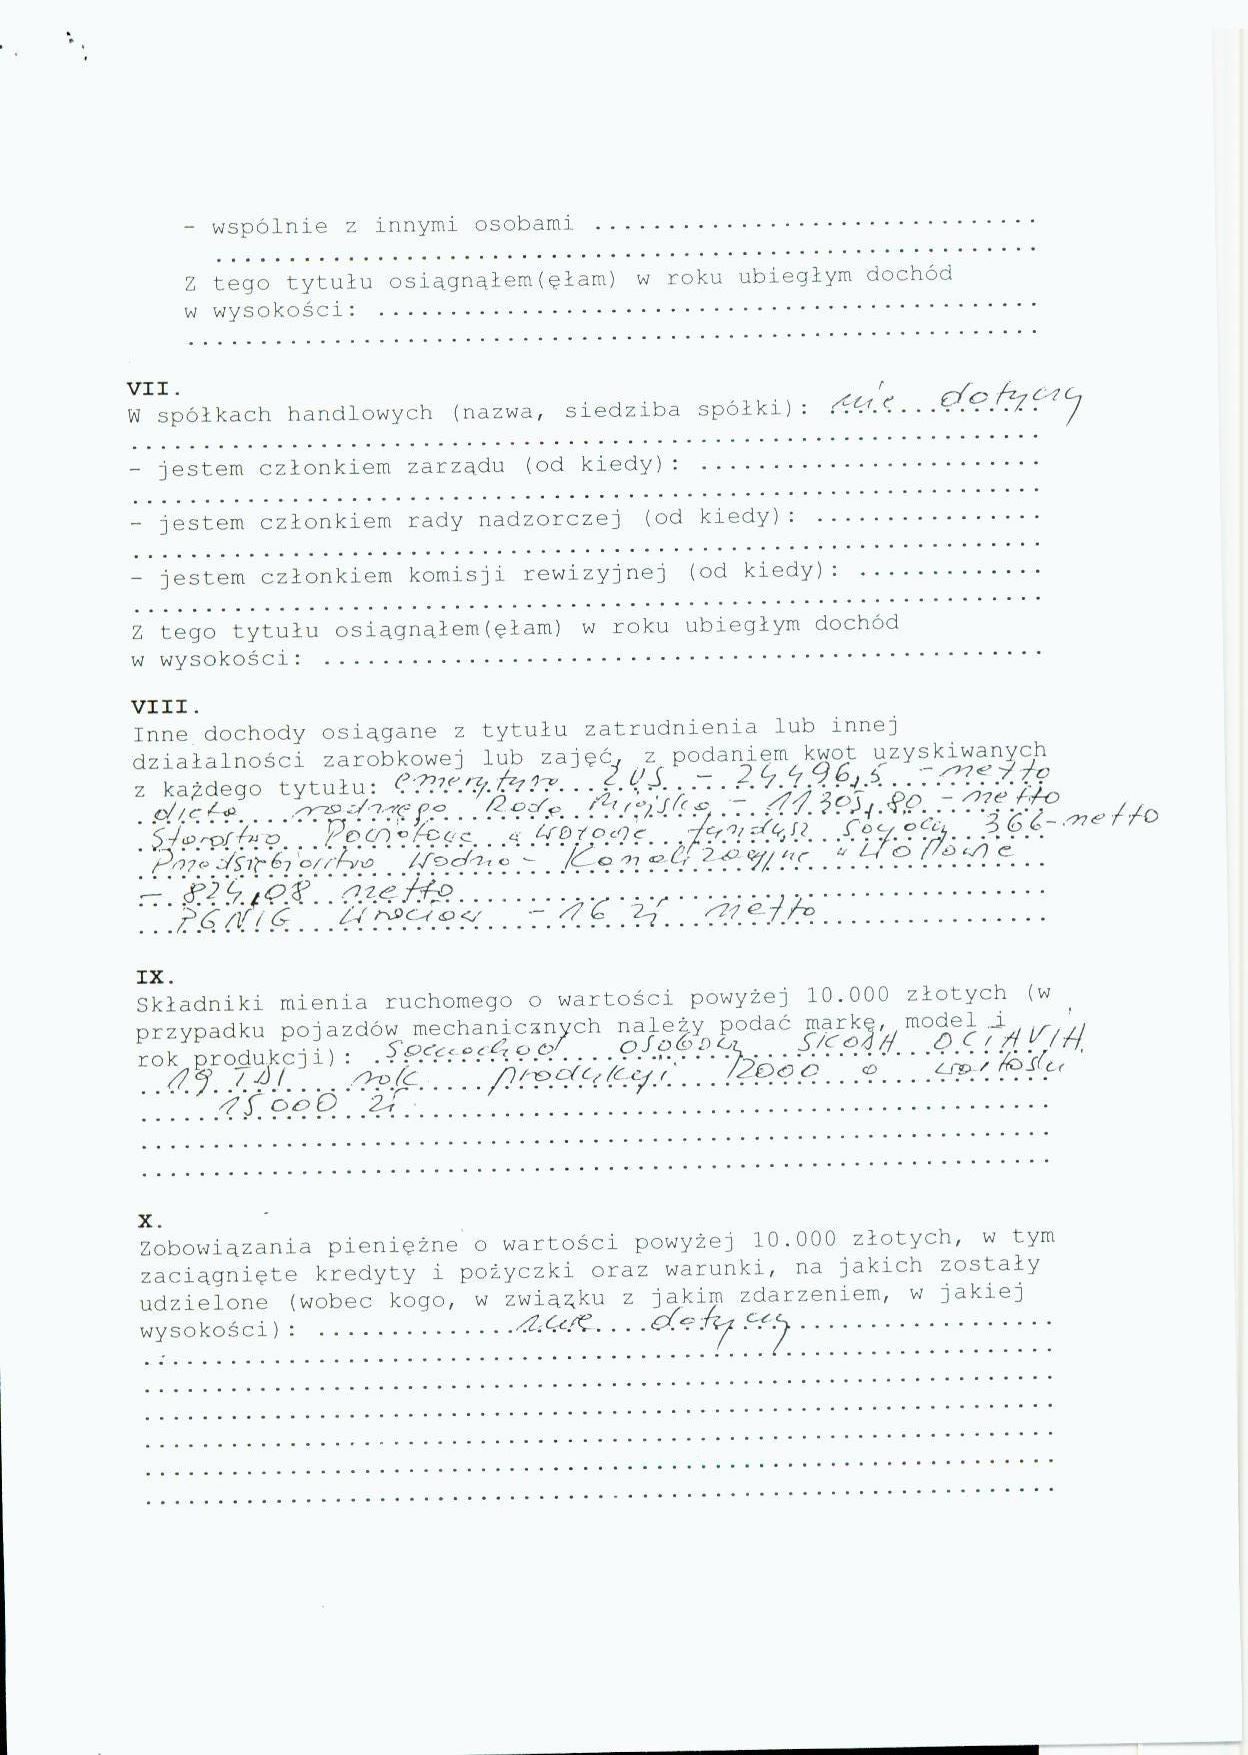 - wspólnie z innymi osobami ...............................
.........................................................
Z tego tytułu osiągnąłem(ęłam) w roku ubiegłym dochód
w wysokości: ..............................................
...........................................................
VII.
W spółkach handlowych (nazwa, siedziba spółki): nie dotyczy
...............................................................
- jestem członkiem zarządu (od kiedy): ........................
...............................................................
- jestem członkiem rady nadzorczej (od kiedy): ................
...............................................................
- jestem członkiem komisji rewizyjnej (od kiedy): .............
...............................................................
Z tego tytułu osiągnąłem(ęłam) w roku ubiegłym dochód
w wysokości: ..................................................
VIII.
Inne dochody osiągane z tytułu zatrudnienia lub innej
działalności zarobkowej lub zajęć, z podaniem kwot uzyskiwanych
z każdego tytułu: emerytura ZUS - 24.496,5 - netto
dieta radnego Rada Miejska - 11.305,80 - netto
Starostwo Powiatowe 366 - netto
Przedsiębiorstwo Wodno - Kanalizacyjne
- 824,08 netto
PGNIG - 16 zł netto
IX.
Składniki mienia ruchomego o wartości powyżej 10.000 złotych (w
przypadku pojazdów mechanicznych należy podać markę, model i
rok produkcji): Samochód osobowy SKODA OCTAVIA
1,9 TDI rok produkcji 2000 o wartości
15.000 zł
...............................................................
...............................................................
X.
Zobowiązania pieniężne o wartości powyżej 10.000 złotych, w tym
zaciągnięte kredyty i pożyczki oraz warunki, na jakich zostały
udzielone (wobec kogo, w związku z jakim zdarzeniem, w jakiej
wysokości): .............nie dotyczy..................
...............................................................
...............................................................
...............................................................
...............................................................
...............................................................
...............................................................